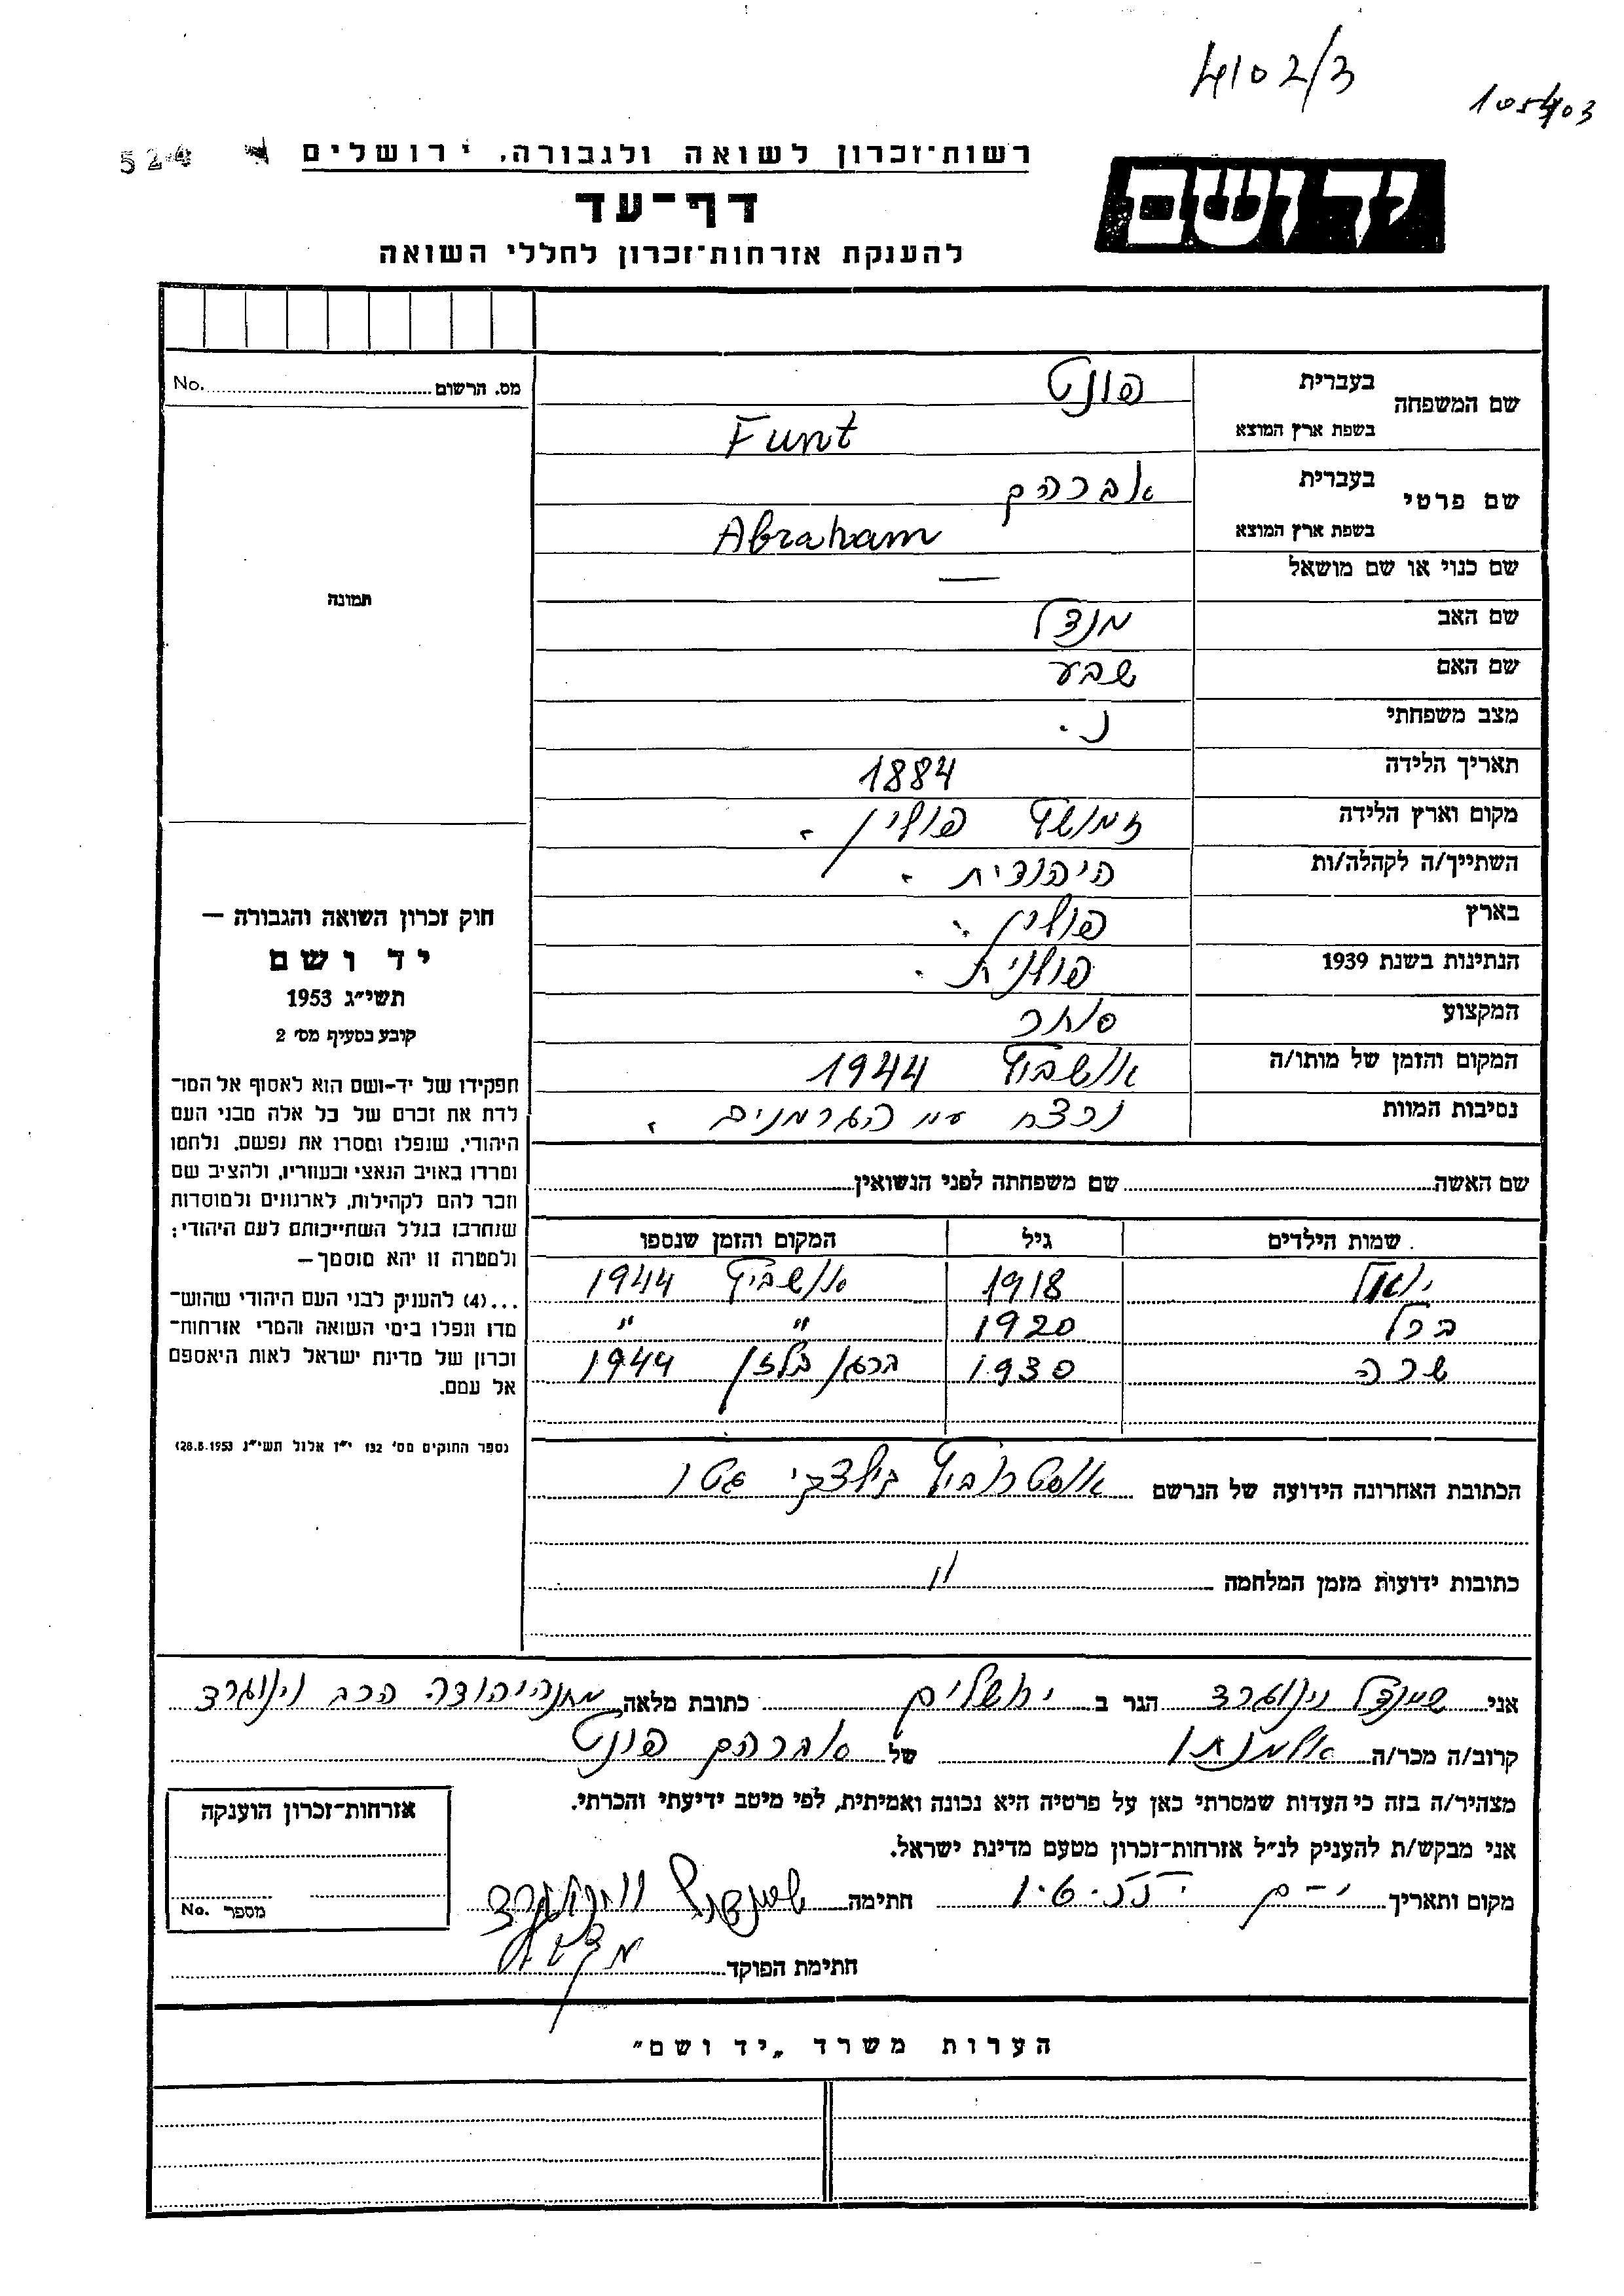 4102/3
105403
524
רשות־זכרון לשואה ולגבורה, ירושלים
יד ושם
דף־עד
להענקת אזרחות־זכרון לחללי השואה
מס. הרשום No.
תמונה
שם המשפחה בעברית פונט
בשפת ארץ המוצא Funt
שם פרטי בעברית אברהם
בשפת ארץ המוצא Abraham
שם כנוי או שם מושאל —
שם האב מנדל
שם האם שבע
מצב משפחתי נ.
תאריך הלידה 1884
מקום וארץ הלידה זמושץ פולין.
השתייך/ה לקהלה/ות היהודית.
בארץ פולין.
הנתינות בשנת 1939 פולנית.
המקצוע סוחר
המקום והזמן של מותו/ה אושביץ 1944
נסיבות המוות נרצח ע״י הגרמנים.
שם האשה שם משפחתה לפני הנשואין
שמות הילדים גיל המקום והזמן שנספו
1918 אושביץ 1944
ברל 1920 " "
שרה 1930 ברגן בלזן 1944
הכתובת האחרונה הידועה של הנרשם גטו
כתובות ידועות מזמן המלחמה "
חוק זכרון השואה והגבורה —
יד ושם
תשי״ג 1953
קובע בסעיף מס׳ 2
תפקידו של יד-ושם הוא לאסוף אל המו־
לדת את זכרם של כל אלה מבני העם
היהודי, שנפלו ומסרו את נפשם, נלחמו
ומרדו באויב הנאצי ובעוזריו, ולהציב שם
וזכר להם לקהילות, לארגונים ולמוסדות
שנחרבו בגלל השתייכותם לעם היהודי;
ולמטרה זו יהא מוסמך—
...(4) להענין לבני העם היהודי שהוש־
מדו ונפלו בימי השואה והמרי אזרחות־
זכרון של מדינת ישראל לאות היאספם
אל עמם.
(ספר החוקים מס׳ 132 י״ז אלול תשי״ג 28.8.1953)
אני שיינדל וינוגרד הגר ב ירושלים כתובת מלאה מחנה יהודה הרב וינוגרד
קרוב/ה מכר/ה אלמנתו של אברהם פונט
מצהיר/ה בזה כי העדות שמסרתי כאן על פרטיה היא נכונה ואמיתית, לפי מיטב ידיעתי והכרתי.
אני מבקש/ת להעניק לנ״ל אזרחות־זכרון מטעם מדינת ישראל.
מקום ותאריך י-ם חתימה שיינדל וינוגרד
חתימת הפוקד
אזרחות־זכרון הוענקה
מספר No.
הערות משרד „יד ושם"